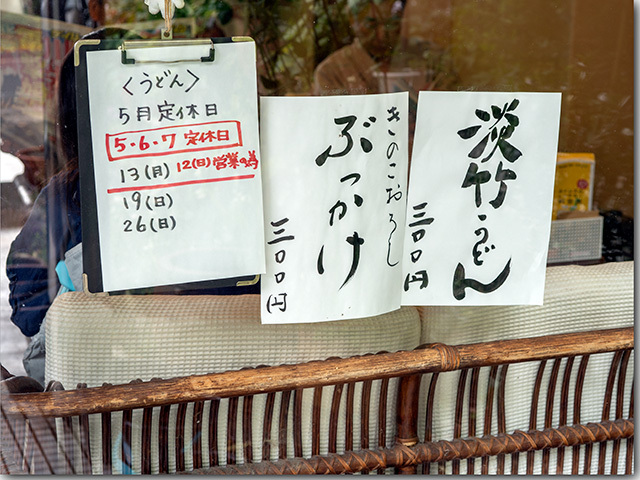 〈うどん〉
5月定休日
5・6・7 定休日
13(月) 12(日)営業の為
19(日)
26(日)
きのこおろし
ぶっかけ
三〇〇円
淡竹うどん
三〇〇円